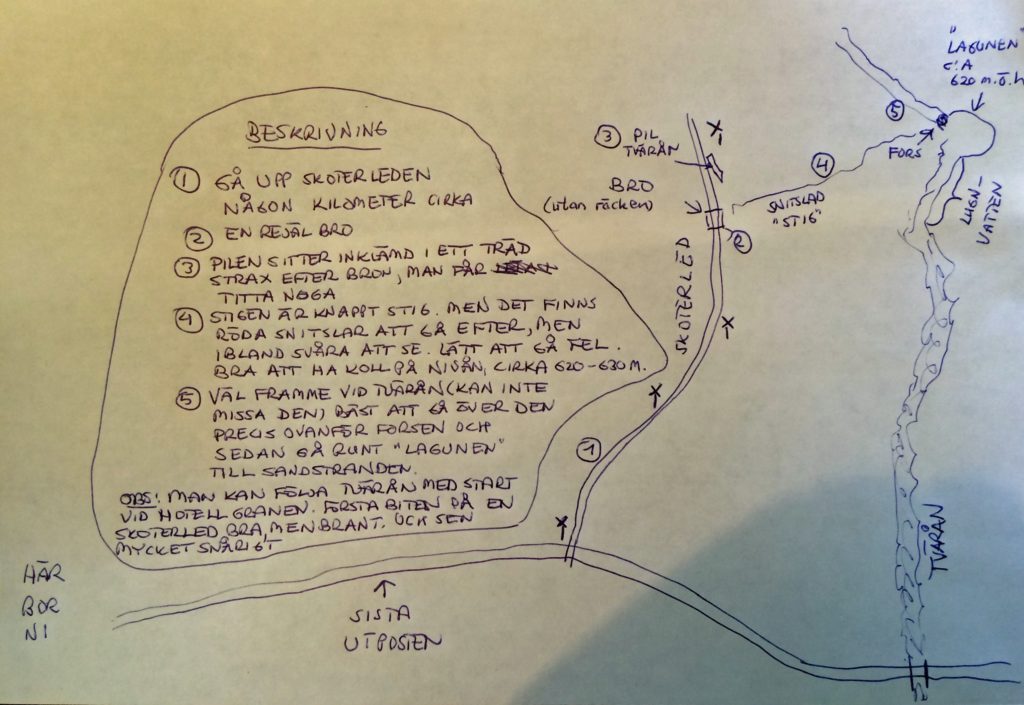 BESKRIVNING
① GÅ UPP SKOTERLEDEN
NÅGON KILOMETER CIRKA
② EN REJÄL BRO
③ PILEN SITTER INKLÄMD I ETT TRÄD
STRAX EFTER BRON, MAN FÅR
TITTA NOGA
④ STIGEN ÄR KNAPPT STIG. MEN DET FINNS
RÖDA SNITSLAR ATT GÅ EFTER, MEN
IBLAND SVÅRA ATT SE. LÄTT ATT GÅ FEL.
BRA ATT HA KOLL PÅ NIVÅN, CIRKA 620-630 M.
⑤ VÄL FRAMME VID TVÄRÅN (KAN INTE
MISSA DEN) BÄST ATT GÅ ÖVER DEN
PRECIS OVANFÖR FORSEN OCH
SEDAN GÅ RUNT "LAGUNEN"
TILL SANDSTRANDEN.
OBS! MAN KAN FÖLJA TVÄRÅN MED START
VID HOTELL GRANEN. FÖRSTA BITEN PÅ EN
SKOTERLED BRA, MEN BRANT. OCH SEN
MYCKET SNÅRIGT
HÄR
BOR
NI
↑
SISTA
UTPOSTEN
①
SKOTERLED
BRO
(utan räcken)
②
③ PIL
TVÄRÅN
④
SNITSLAD
"STIG"
⑤
FORS
"LAGUNEN"
C:A
620 m.ö.h
LUGN-
VATTEN
TVÄRÅN